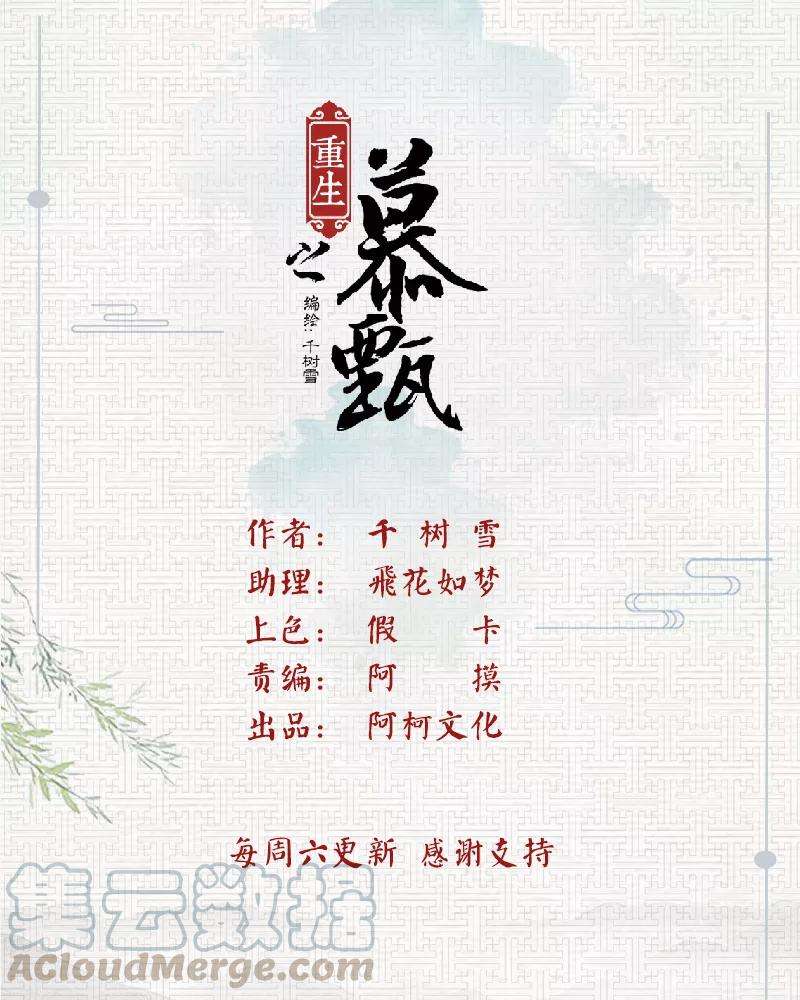 重生
之
慕甄
编绘：千树雪
作者： 千树雪
助理： 飛花如梦
上色： 假卡
责编： 阿摸
出品： 阿柯文化
每周六更新 感谢支持
集云数据
ACloudMerge.com